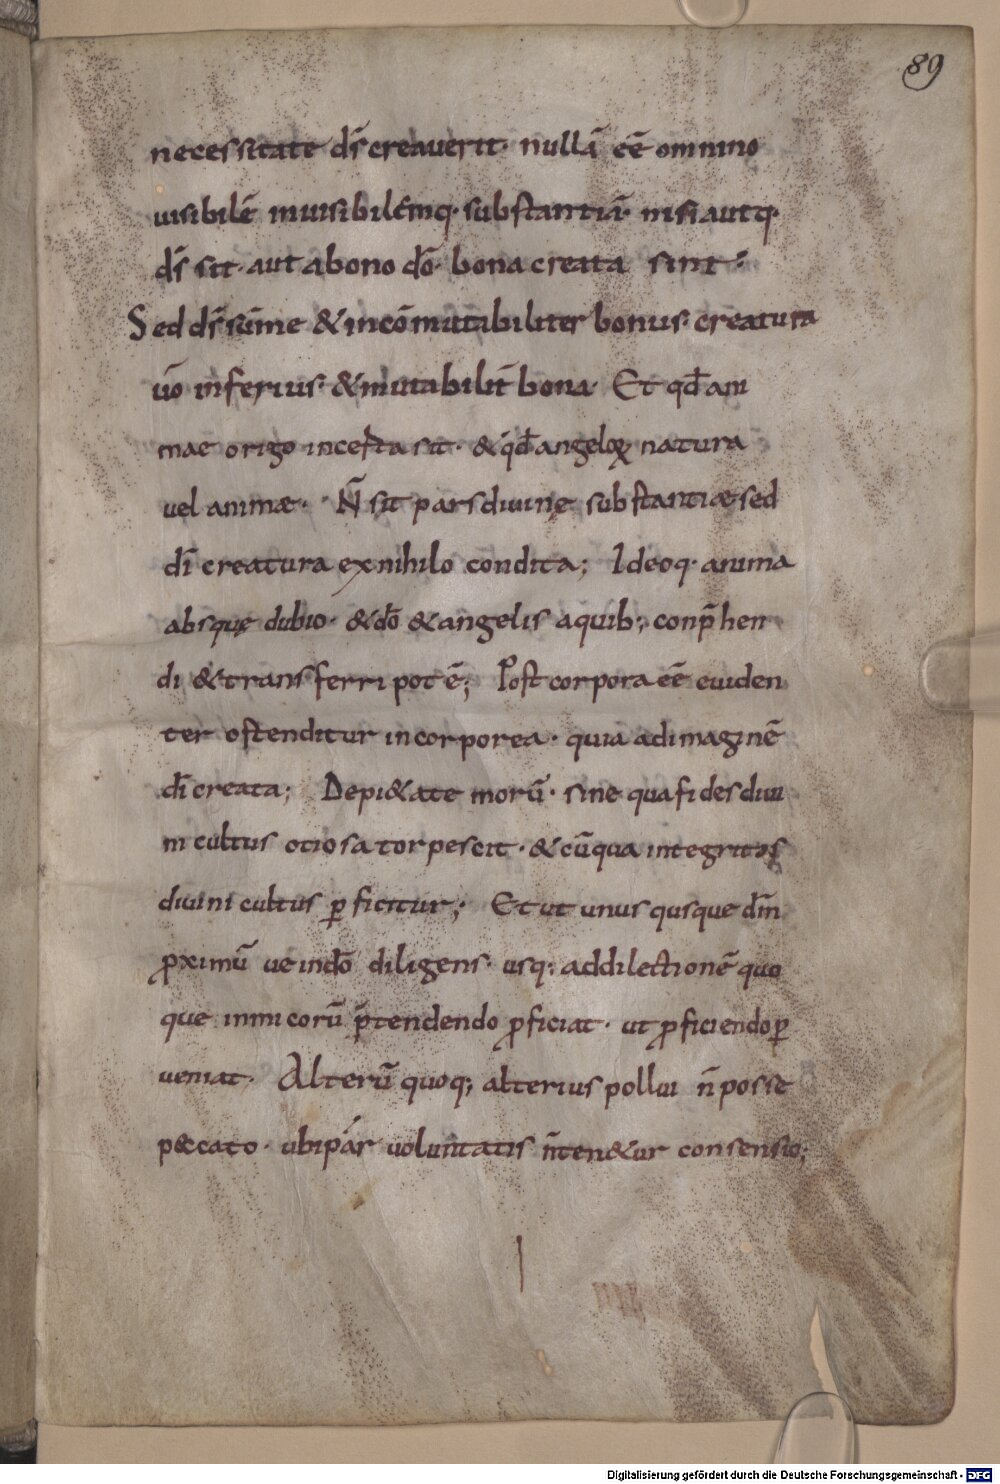 89
necessitate ds̄ creauerit· nullā eē omnino
uisibilē inuisibilémq· substantiā· nisi aut q·
ds̄ sit· aut abono dō· bona creata sint·
Sed ds̄ sūme & incōmutabiliter bonus· creatura
uō inferius· & mutabilit̄ bona· Et qd̄ ani
mae origo incerta sit· & qd̄ angeloꝝ natura
uel animæ· N̄ sit pars diuinę substantiæ sed
dī creatura ex nihilo condita; Ideoq· anima
absquę dubio· & dō & angelis aquib; conp̄hen
di & transferri pot ē; Post corpora eē euiden
ter ostenditur incorporea· quia adimaginē
dī creata; Depi&ate morū· sine qua fides diui
ni cultus otiosa torpescit· & cū qua integritas
diuini cultus ꝑficitur; Et ut unus qusque dm̄
ꝓximū ue indō diligens· usq; addilectionē quo
que inimicorū p̄tendendo ꝓficiat· ut ꝓficiendo ꝑ
ueniat· Alterū quoq; alterius pollui n̄ posse
p&cato· ubi pár uoluntatis n̄ ten&ur consensio;
Digitalisierung gefördert durch die Deutsche Forschungsgemeinschaft - DFG